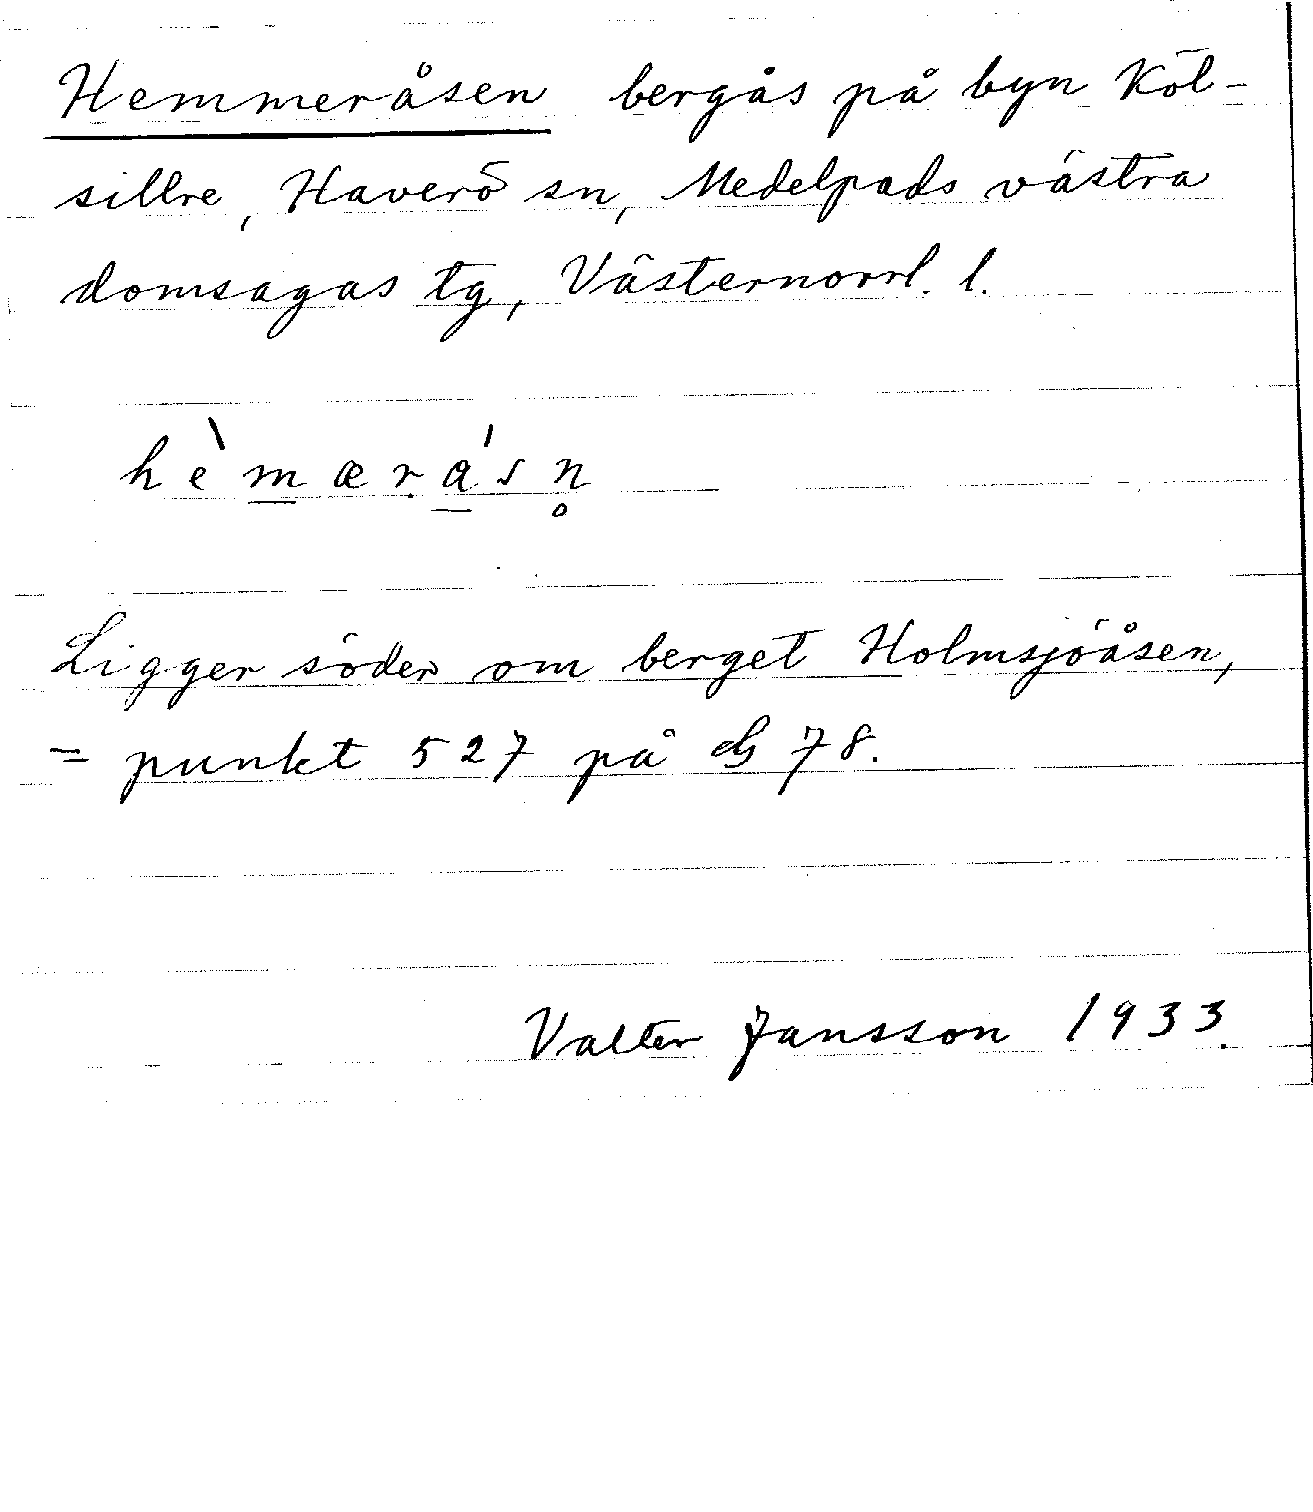 Hemmeråsen bergås på byn Köl-
sillre, Haverö sn, Medelpads västra
domsagas tg, Västernorrl. l.
hèmæråsn̥
Ligger söder om berget Holmsjöåsen,
= punkt 527 på G 78.
Valter Jansson 1933.